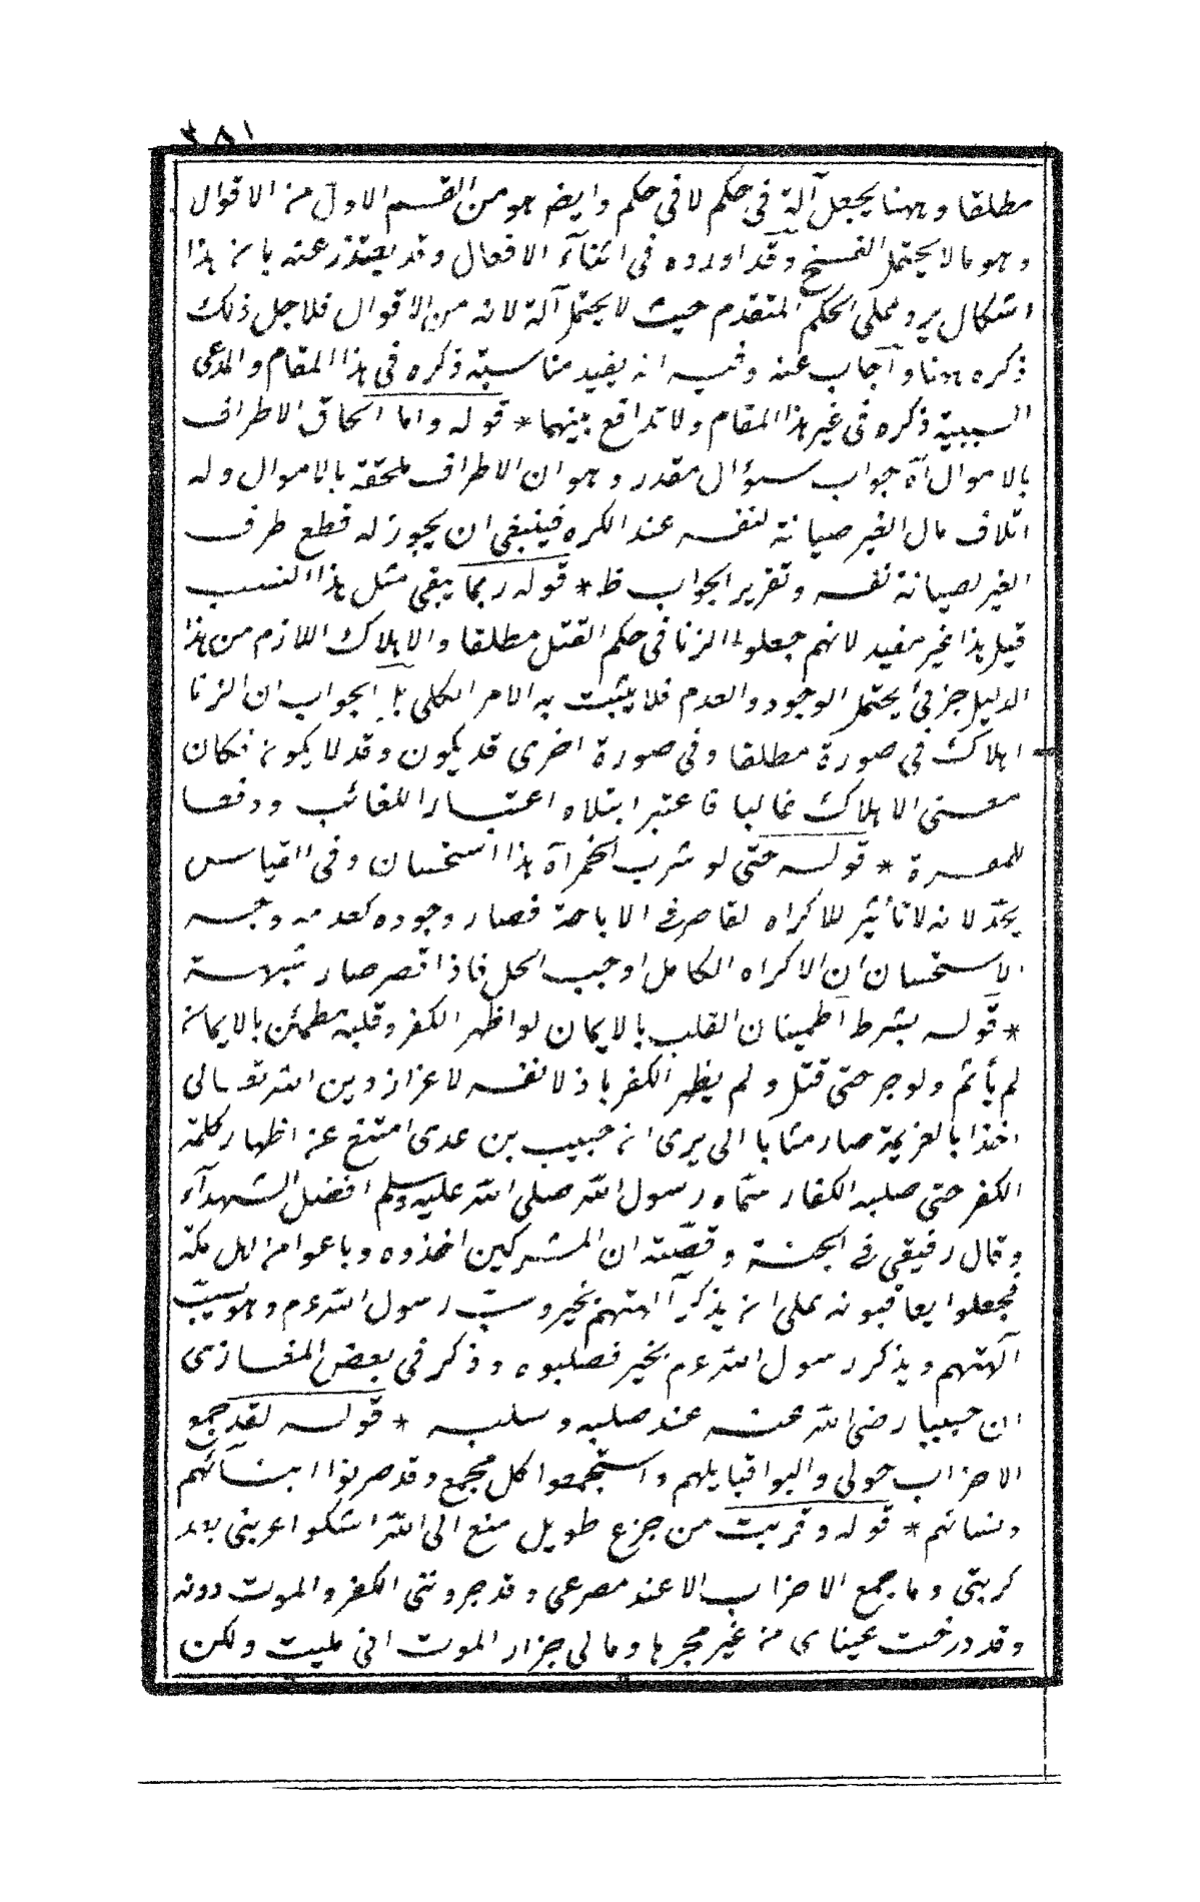 ٣٨١
مطلقا وههنا يجعل آلة فى حكم لا فى حكم وايضا هو من القسم الاول من الاقوال
وهو ما لا يحتمل الفسخ وقد اورده فى اثناء الافعال وقد يعتذر عنه بان هذا
اشكال يرد على الحكم المتقدم حيث لا يحتمل آلة لانه من الاقوال فلاجل ذلك
ذكره هنا واجاب عنه وفيه انه يفيد مناسبة ذكره فى هذا المقام والمدعى
السببية ذكره فى غير هذا المقام ولا تدافع بينهما * قوله واما الحاق الاطراف
بالاموال آه جواب سؤال مقدر وهو ان الاطراف ملحقة بالاموال وله
اتلاف مال الغير صيانة لنفسه عند الكره فينبغى ان يجوز له قطع طرف
الغير لصيانة نفسه وتقرير الجواب ظ * قوله ربما يبقى مثل هذا النسب
قيل هذا غير مفيد لانهم جعلوا الزنا فى حكم القتل مطلقا والاهلاك اللازم من هذا
الدليل جزئى يحتمل الوجود والعدم فلا يثبت به الامر الكلى بل الجواب ان الزنا
اهلاك فى صورة مطلقا وفى صورة اخرى قد يكون وقد لا يكون فكان
معنى الاهلاك غالبا فاعتبر ابتلاه اعتبارا للغائب ودفعا
للمعسرة * قوله حتى لو شرب الخمر آه هذا استحسان وفى القياس
يحد لانه لا تأثير للاكراه القاصر فى الاباحة فصار وجوده كعدمه وجه
الاستحسان ان الاكراه الكامل اوجب الحل فاذا قصر صار شبهة
* قوله بشرط اطمينان القلب بالايمان لو اظهر الكفر وقلبه مطمئن بالايمان
لم يأثم ولو صبر حتى قتل ولم يظهر الكفر باذلا نفسه لاعزاز دين الله تعالى
اخذا بالعزيمة صار مثابا الى يرى ان خبيب بن عدى امتنع عن اظهار كلمة
الكفر حتى صلبه الكفار سماه رسول الله صلى الله عليه وسلم افضل الشهدآء
وقال رفيقى فى الجنة وقصته ان المشركين اخذوه وباعوا من اهل مكة
فجعلوا يعاقبونه على ان يذكر آلهتهم بخير وسب رسول الله عم وهو يسب
آلهتهم ويذكر رسول الله عم بخير فصلبوه وذكر فى بعض المغازى
ان خبيبا رضى الله عنه عند صلبه وسلبه * قوله لقد جمع
الاحزاب حولى والبوا قبايلهم واستجمعوا كل مجمع وقد حزبوا ابنائهم
ونسائهم * قوله وقربت من جزع طويل منع الى الله اشكوا غربتى بعد
كربتى وما جمع الاحزاب الا عند مصرعى وقد خيرونى الكفر والموت دونه
وقد درفت عيناى من غير مجرها ومالى حزار الموت انى مليت ولكن